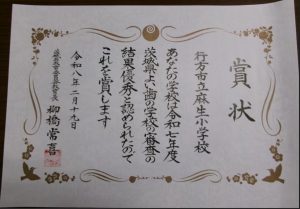 賞状
行方市立麻生小学校
あなたの学校は令和七年度
茨城県よい歯の学校の審査の
結果優秀と認められたので
これを賞します
令和八年二月十九日
柳橋常喜